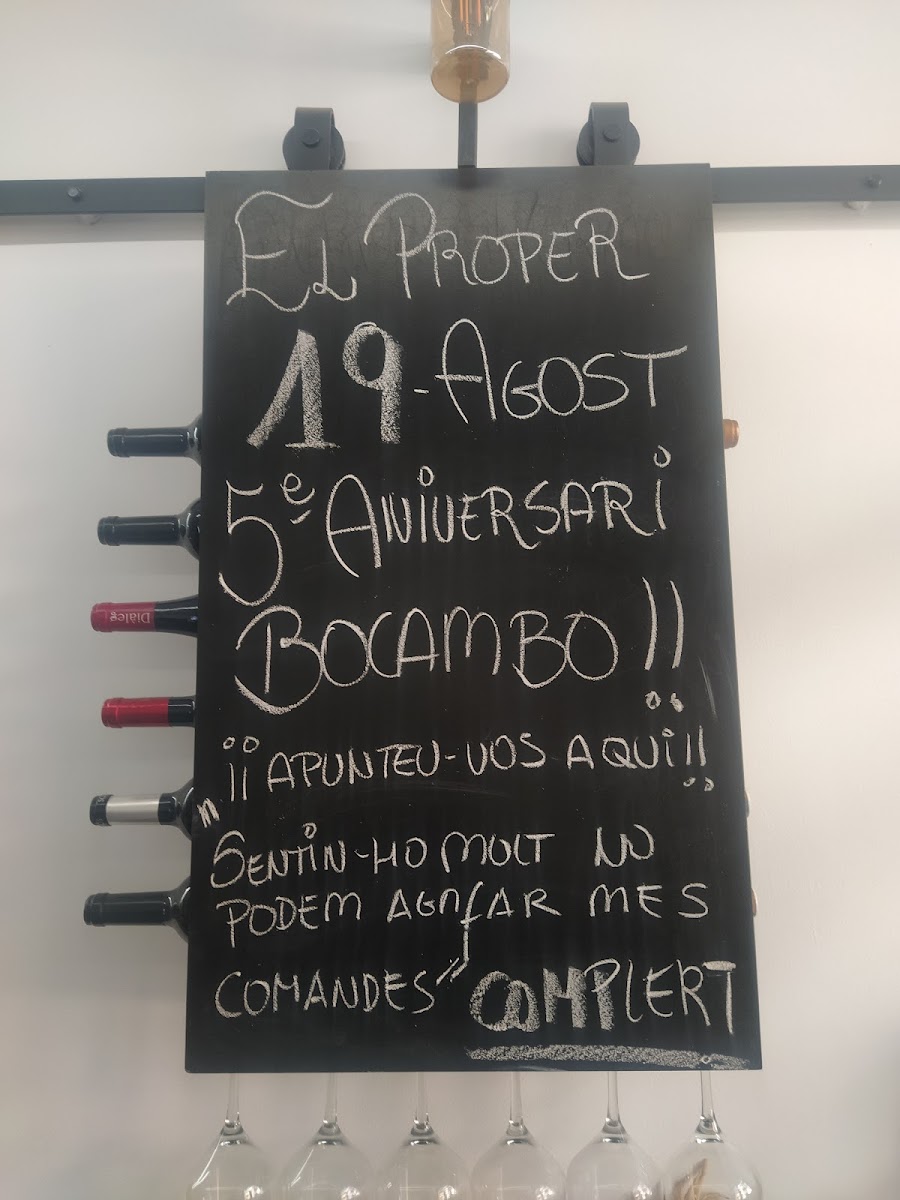 EL PROPER
19-AGOST
5è ANIVERSARI
BOCAMBO!!
¡¡APUNTEU-VOS AQUI!!
"SENTIN-HO MOLT NO
PODEM AGAFAR MES
COMANDES" COMPLERT
Diàleg